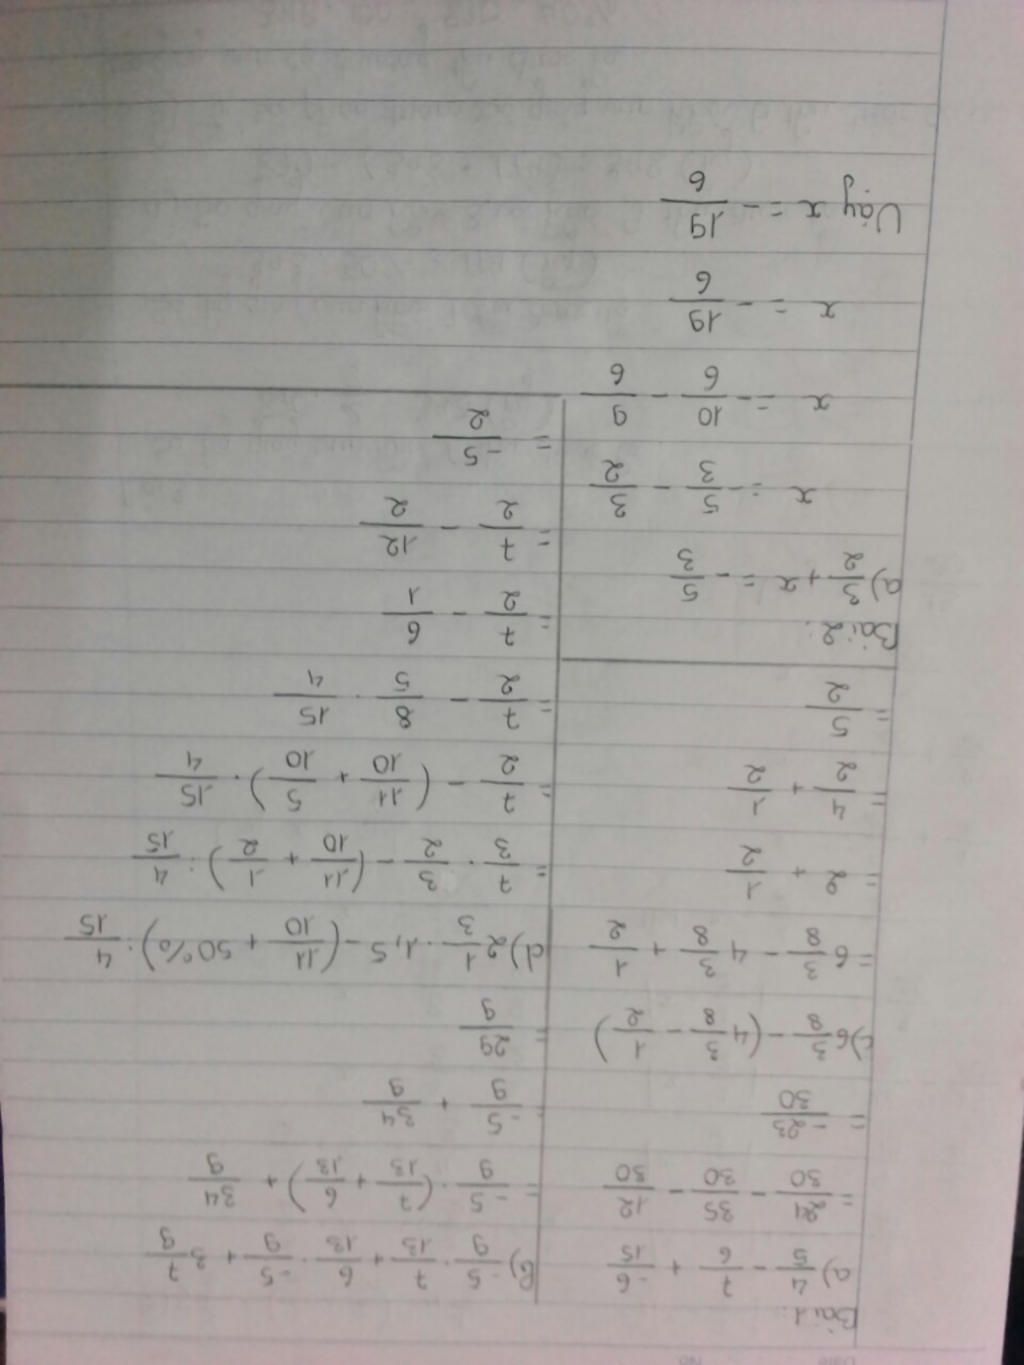 Bài 1:
a) 4/5 - 7/6 + -6/15
= 24/30 - 35/30 - 12/30
= -23/30
c) 6 3/8 - (4 3/8 - 1/2)
= 6 3/8 - 4 3/8 + 1/2
= 2 + 1/2
= 4/2 + 1/2
= 5/2
b) -5/9 . 7/13 + 6/13 . -5/9 + 3 7/9
= -5/9 . (7/13 + 6/13) + 34/9
= -5/9 + 34/9
= 29/9
d) 2 1/3 . 1,5 - (11/10 + 50%) : 4/15
= 7/3 . 3/2 - (11/10 + 1/2) : 4/15
= 7/2 - (11/10 + 5/10) . 15/4
= 7/2 - 8/5 . 15/4
= 7/2 - 6/1
= 7/2 - 12/2
= -5/2
Bài 2:
a) 3/2 + x = - 5/3
x = - 5/3 - 3/2
x = - 10/6 - 9/6
x = - 19/6
Vậy x = - 19/6